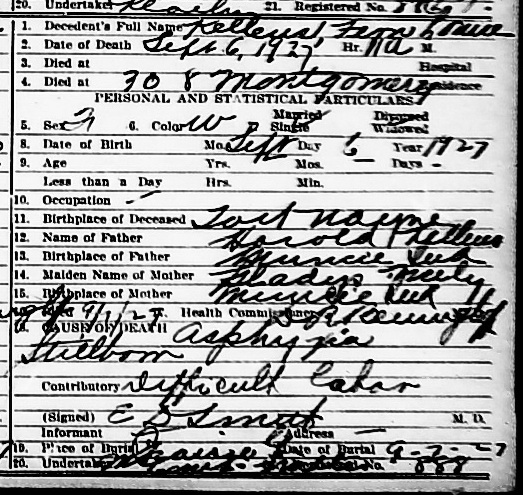 20. Undertaker 21. Registered No.
1. Decedent's Full Name Kelleus, Fern Louise
2. Date of Death Sept. 6, 1927 Hr. 11 A M.
3. Died at Hospital
4. Died at 308 Montgomery Residence
PERSONAL AND STATISTICAL PARTICULARS
5. Sex F 6. Color W 7. Married Single Divorced Widowed
8. Date of Birth Mo. Sept Day 6 Year 1927
9. Age Yrs. Mos. — Days -
Less than a Day Hrs. Min.
10. Occupation —
11. Birthplace of Deceased Fort Wayne
12. Name of Father Harold Kelleus
13. Birthplace of Father Muncie Ind
14. Maiden Name of Mother Gladys
15. Birthplace of Mother Muncie Ind
9/7/27. Health Commissioner
18. CAUSE OF DEATH Asphyxia
Stillborn
Contributory Difficult Labor
(Signed) E S Smith M. D.
Informant Address —
19. Place of Burial Date of Burial 9-7-27
20. Undertaker No. 888